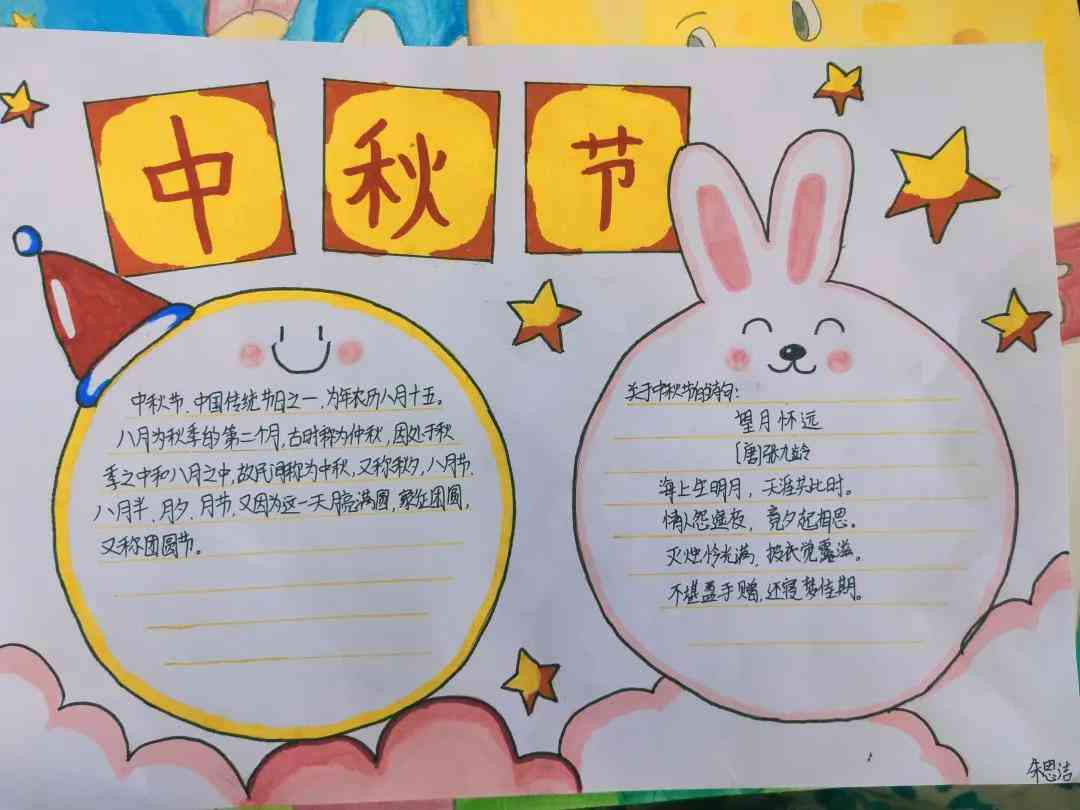 中秋节
中秋节、中国传统节日之一、为年农历八月十五。
八月为秋季的第二个月,古时称为仲秋,因处于秋
季之中和八月之中,故民间称为中秋,又称秋夕,八月节、
八月半、月夕、月节,又因为这一天月亮满圆,象征团圆,
又称团圆节。
关于中秋节的诗句:
望月怀远
[唐]张九龄
海上生明月,天涯共此时。
情人怨遥夜,竟夕起相思。
灭烛怜光满,披衣觉露滋。
不堪盈手赠,还寝梦佳期。
朱思洁